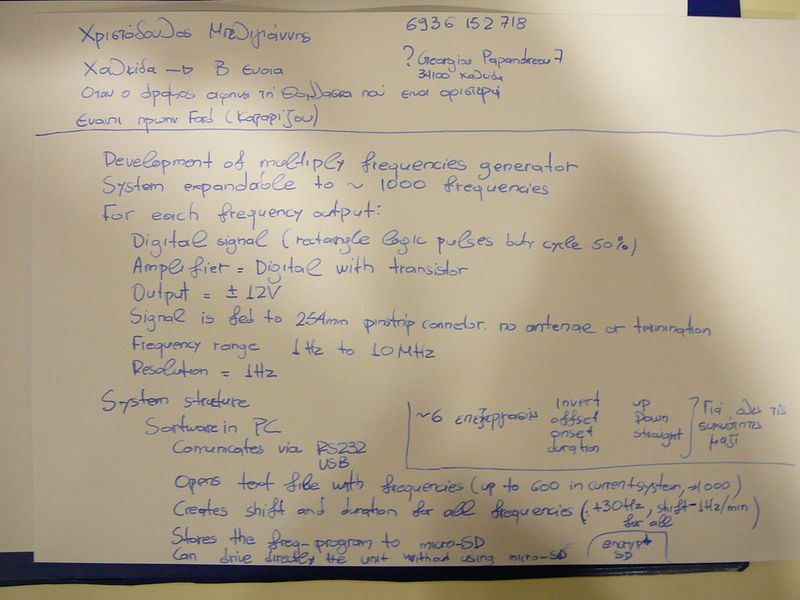 Χριστόδουλος Μπελιγιάννης
6936 152 718
Χαλκίδα → Β Ευοια
? Georgiou Papandreou 7
34100 Χαλκίδα
Οταν ο δρομος αφηνει τη θαλασσα που ειναι αριστερά
έναντι πρωην Ford (Καραρίζου)
Development of multiply frequencies generator
System expandable to ~ 1000 frequencies
For each frequency output:
Digital signal (rectangle logic pulses duty cycle 50%)
Amplifier = Digital with transistor
Output = ± 12V
Signal is fed to 254mm pinstrip connetor. no antenae or termination
Frequency range 1Hz to 10MHz
Resolution = 1Hz
System structure
~6 επεξεργασίες
invert
offset
onset
duration
up
Down
straight
? Για όλες τις
συχνότητες
μαζί
Software in PC
Comunicates via RS232
USB
Opens text file with frequencies (up to 600 in current system, →1000)
Creates shift and duration for all frequencies (: +30Hz, shift -1Hz/min)
for all
Stores the freq-program to micro-SD
Can drive directly the unit without using micro-SD
encrypt
SD